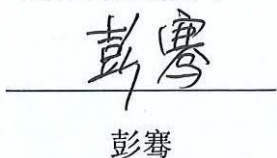 彭骞
彭骞